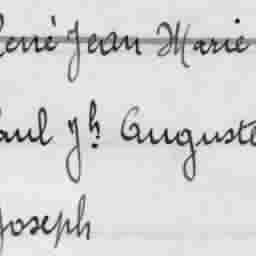 René Jean Marie
Paul Jh Auguste
Joseph